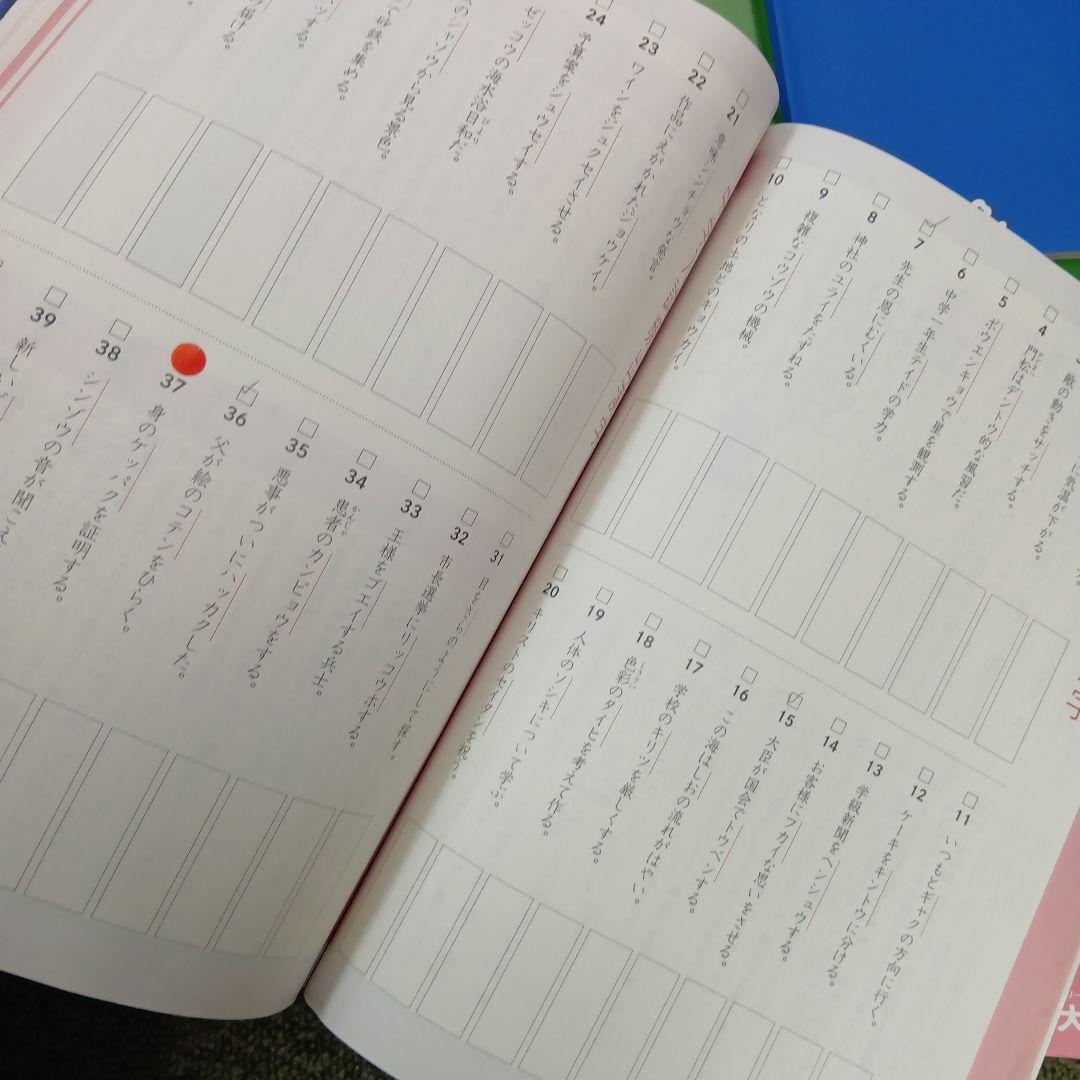 に気温が下がる。
敵の動きをサッチする。
4 門松はデントウ的な風習だ。
5 ボウエンキョウで星を観測する。
6 中学一年生テイドの学力。
7 先生の恩にむくいる。
8 神社のユライをたずねる。
9 複雑なコウゾウの機械。
10 となりの土地とのキョウカイ。
11 いつもとギャクの方向に行く。
12 ケーキをキントウに分ける。
13 学級新聞をヘンシュウする。
14 お客様にフカイな思いをさせる。
15 大臣が国会でトウベンする。
16 この海はしおの流れがはやい。
17 学校のキリツを厳しくする。
18 色彩のタイヒを考えて作る。
しきさい
19 人体のソシキについて学ぶ。
20 キリストのセイタンを祝う。
21 意味シンチョウな発言。
22 作品にえがかれたジョウケイ。
23 ワインをジュクセイさせる。
24 予算案をシュウセイする。
ゼッコウの海水浴日和だ。
びより
のシャソウから見る景色。
て砂鉄を集める。
する。
傾ける。
31
32 市長選挙にリッコウホする。
33 王様をゴエイする兵士。
34 患者のカンビョウをする。
かんじゃ
35 悪事がついにハッカクした。
36 父が絵のコテンをひらく。
37 身のケッパクを証明する。
38 シンゾウの音が聞こえ
39 新しい